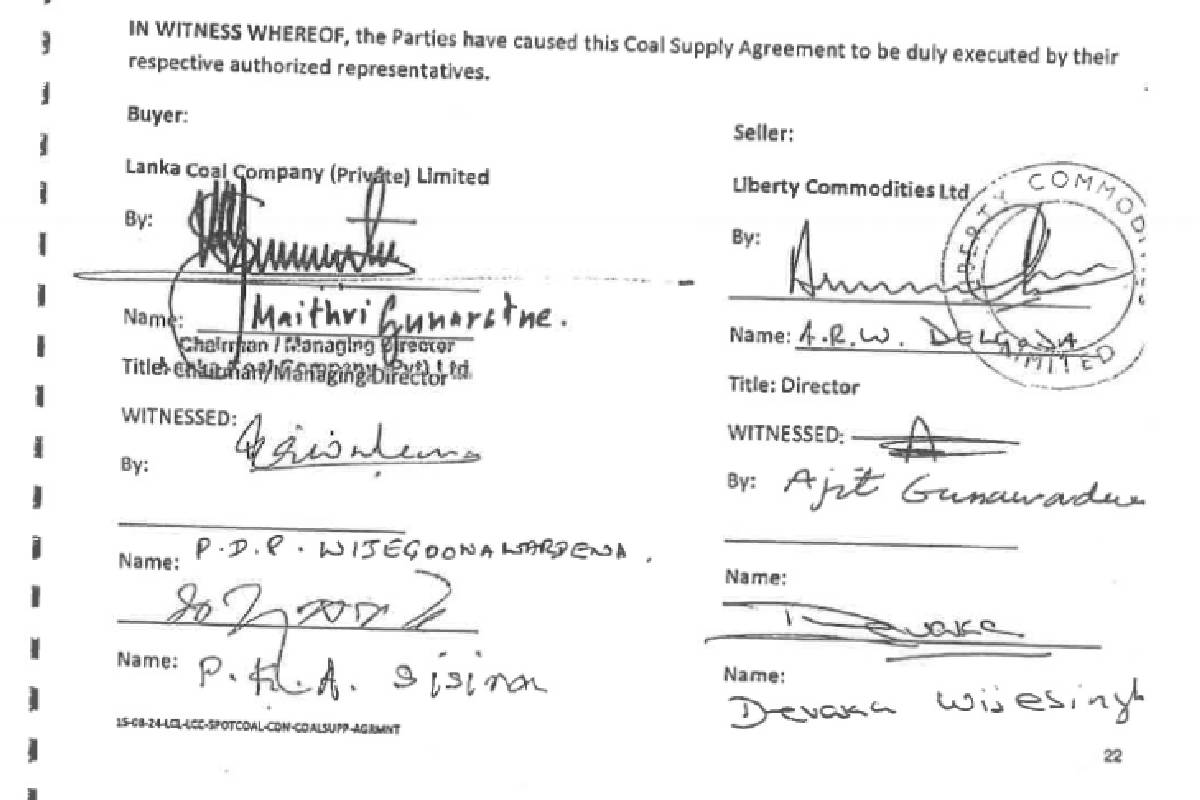 IN WITNESS WHEREOF, the Parties have caused this Coal Supply Agreement to be duly executed by their
respective authorized representatives.
Buyer:
Lanka Coal Company (Private) Limited
By:
Name: Maithri Gunaratne.
Chairman / Managing Director
Lanka Coal Company (Pvt) Ltd.
Title: Chairman/Managing Director
WITNESSED:
By:
Name: P.D.P. WIJEGOONAWARDENA.
Name: P.K.A.
15-08-24-LCL-LCC-SPOTCOAL-CON-COALSUPP-AGRMNT
Seller:
Liberty Commodities Ltd
LIBERTY COMMODITIES
LIMITED
By:
Name: A.R.W. DELGODA
Title: Director
WITNESSED:
By: Ajit Gunawardene
Name:
Devaka
Name:
Devaka Wijesingh
22